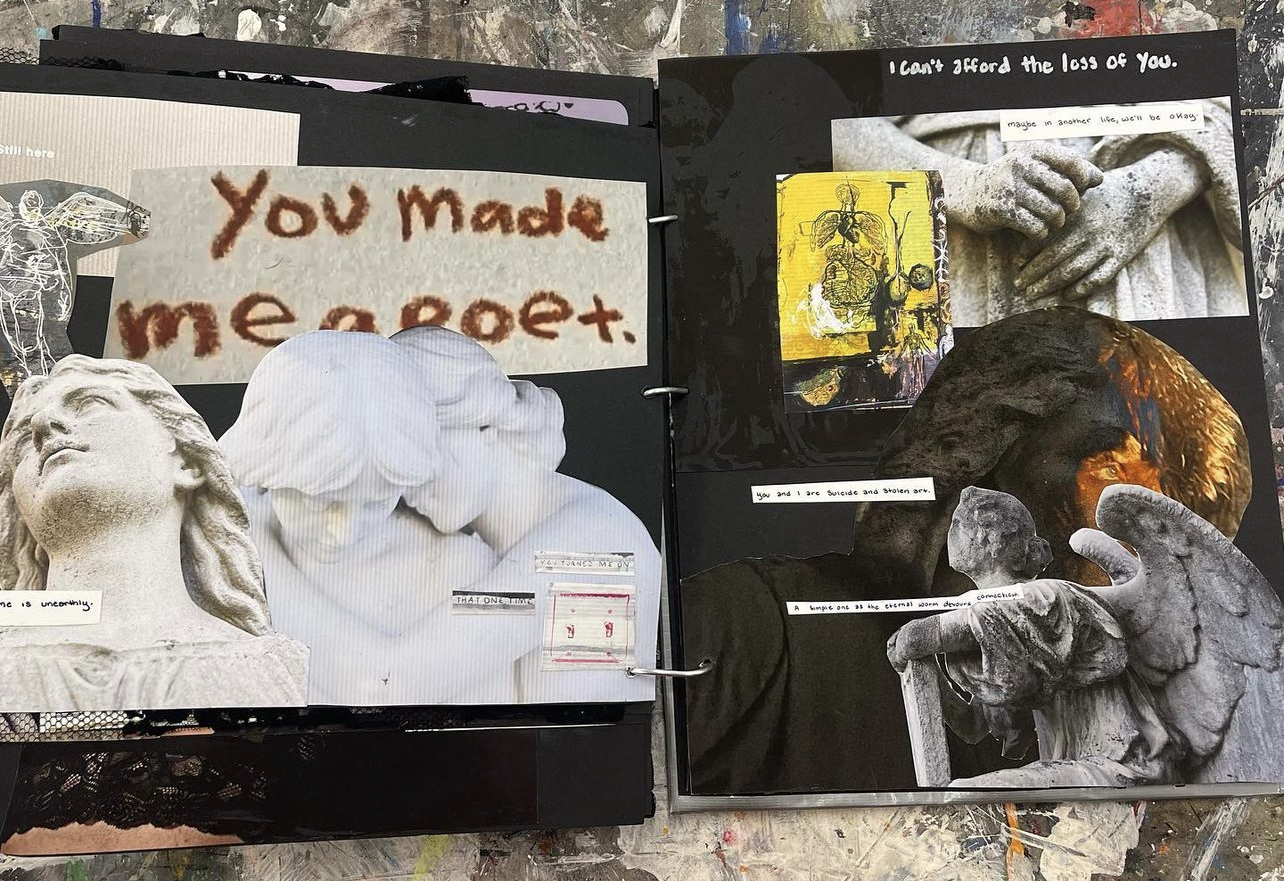 Still here
You made
me a poet.
me is unearthly.
YOU TURNED ME ON
THAT ONE TIME
I can't afford the loss of you.
maybe in another life, we'll be okay.
you and I are suicide and stolen art.
A simple one as the eternal worm devours connecticut.